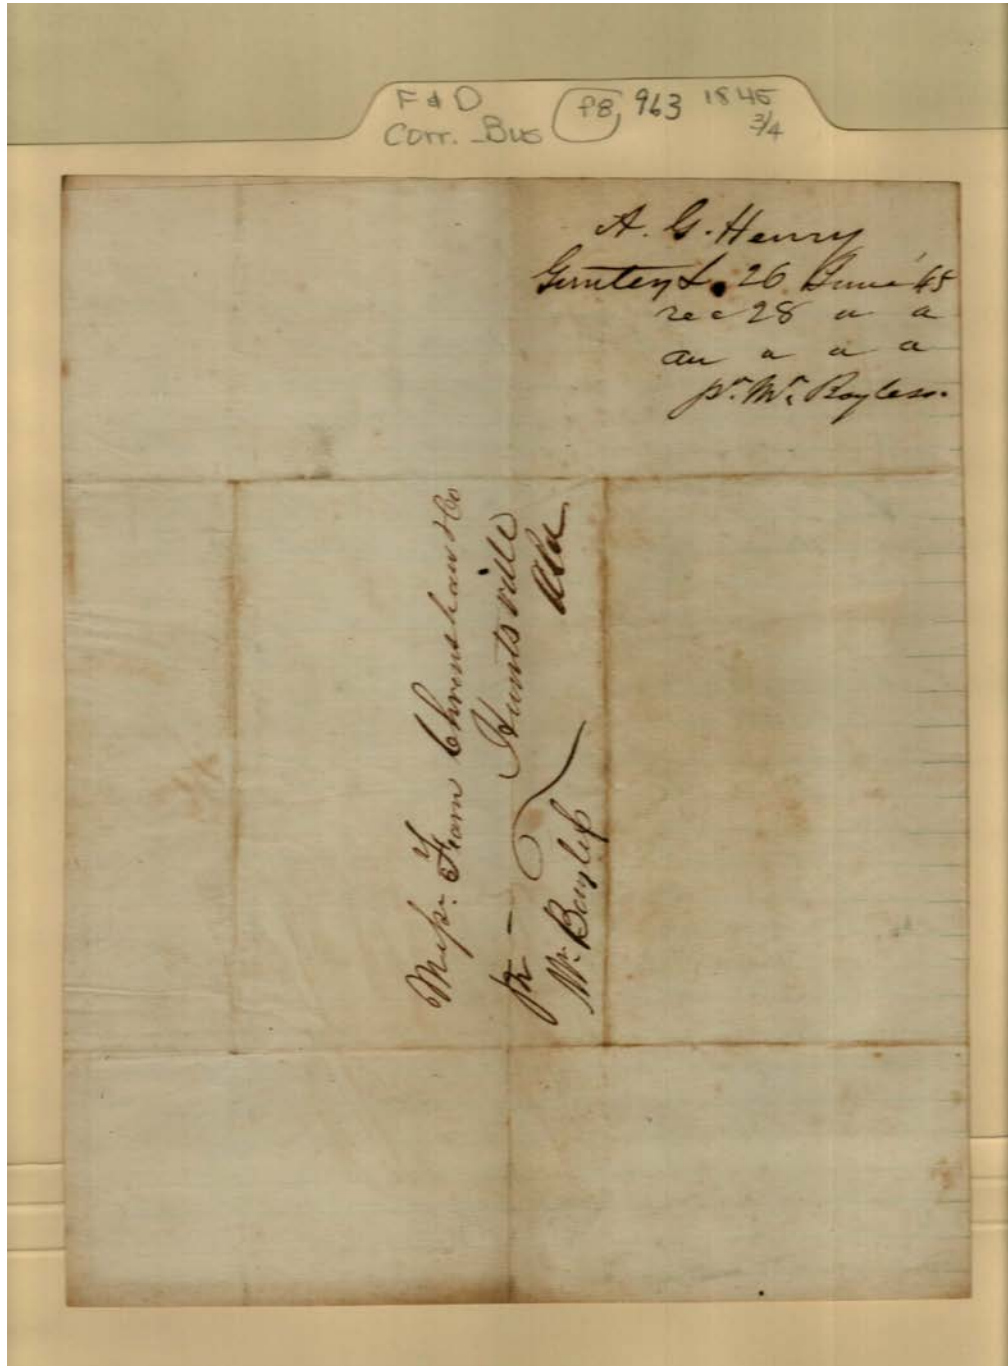 F & D
Corr. Bus P8, 963 1845
3/4
A. G. Henry
26 June '45
rec 28 " "
an " " "
pr. Mr. Bayless.
Messr. Fearn Chrenshaw & Co
Huntsville
Ala
pr
Mr. Bayless